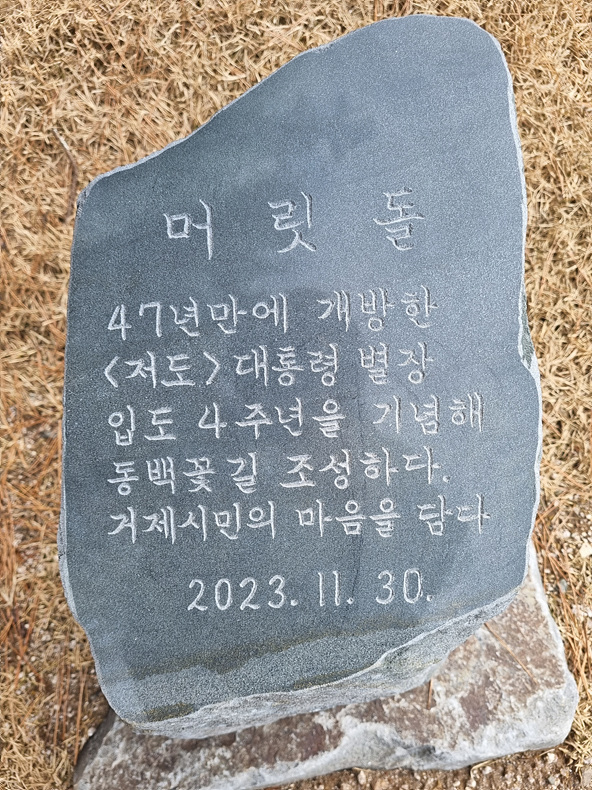 머릿돌
47년만에 개방한
<저도> 대통령 별장
입도 4주년을 기념해
동백꽃길 조성하다.
거제시민의 마음을 담다
2023. 11. 30.